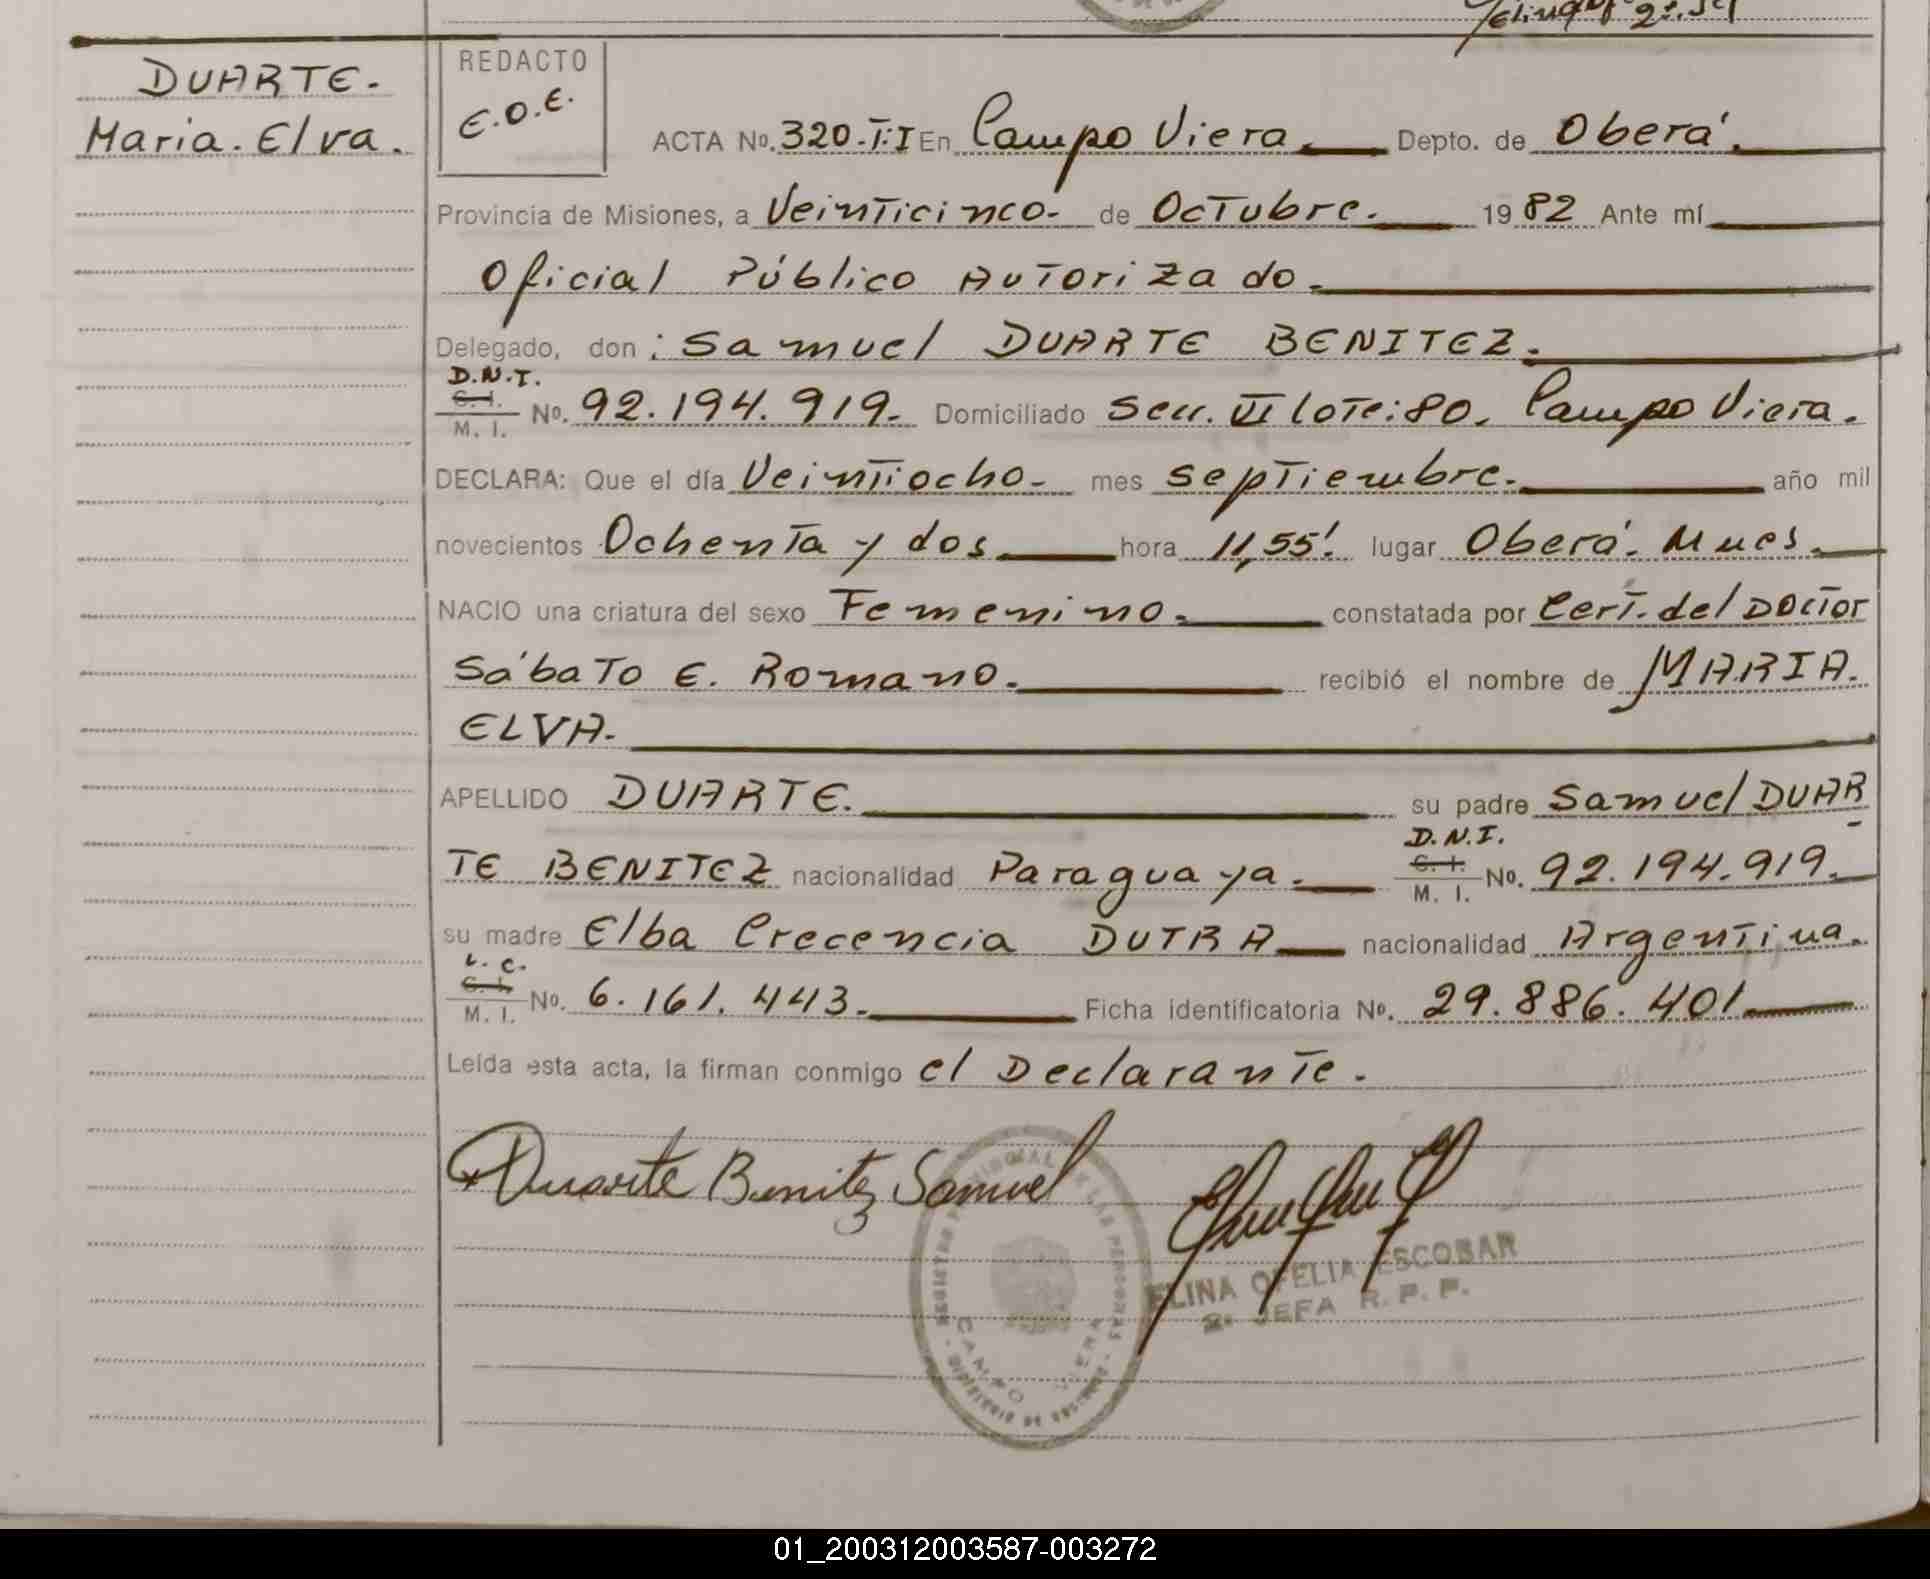 DUARTE.
Maria. Elva.
REDACTO
E.O.E.
ACTA No. 320-T:I En Campo Viera. Depto. de Oberá.
Provincia de Misiones, a Veinticinco- de Octubre. 1982 Ante mí
Oficial Público Autorizado.
Delegado, don: Samuel DUARTE BENITEZ.
D.N.I.
C. I.
M. I.
No. 92.194.919. Domiciliado Secc. VI lote: 80. Campo Viera.
DECLARA: Que el día Veintiocho- mes septiembre. año mil
novecientos Ochenta y dos. hora 11,55'. lugar Oberá. Mnes.
NACIO una criatura del sexo Femenino. constatada por Cert. del Doctor
Sábato E. Romano. recibió el nombre de MARIA.
ELVA.
APELLIDO DUARTE. su padre Samuel DUAR
D.N.I.
TE BENITEZ nacionalidad Paraguaya. C. I. M. I. No. 92.194.919.
su madre Elba Crecencia DUTRA nacionalidad Argentina.
L. C.
C. I.
M. I.
No. 6.161.443. Ficha identificatoria No. 29.886.401
Leída esta acta, la firman conmigo el Declarante.
Duarte Benitez Samuel
REGISTRO PROVINCIAL DE LAS PERSONAS
CAMPO VIERA
ELINA OFELIA ESCOBAR
2a JEFA R. P. P.
01_200312003587-003272